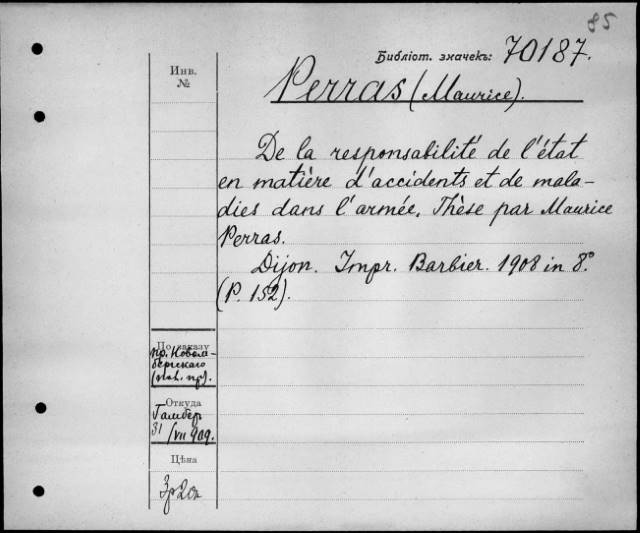 85
Библіот. значекъ: 70187.
Инв.
№
Perras (Maurice).
De la responsabilité de l'état
en matière d'accidents et de mala-
dies dans l'armée. Thèse par Maurice
Perras.
Dijon. Impr. Barbier. 1908 in 8.°
(P. 152).
По заказу
пр. Новом-
бергскаго
Откуда
Гамбер
31/VII 909.
Цѣна
3р 20к